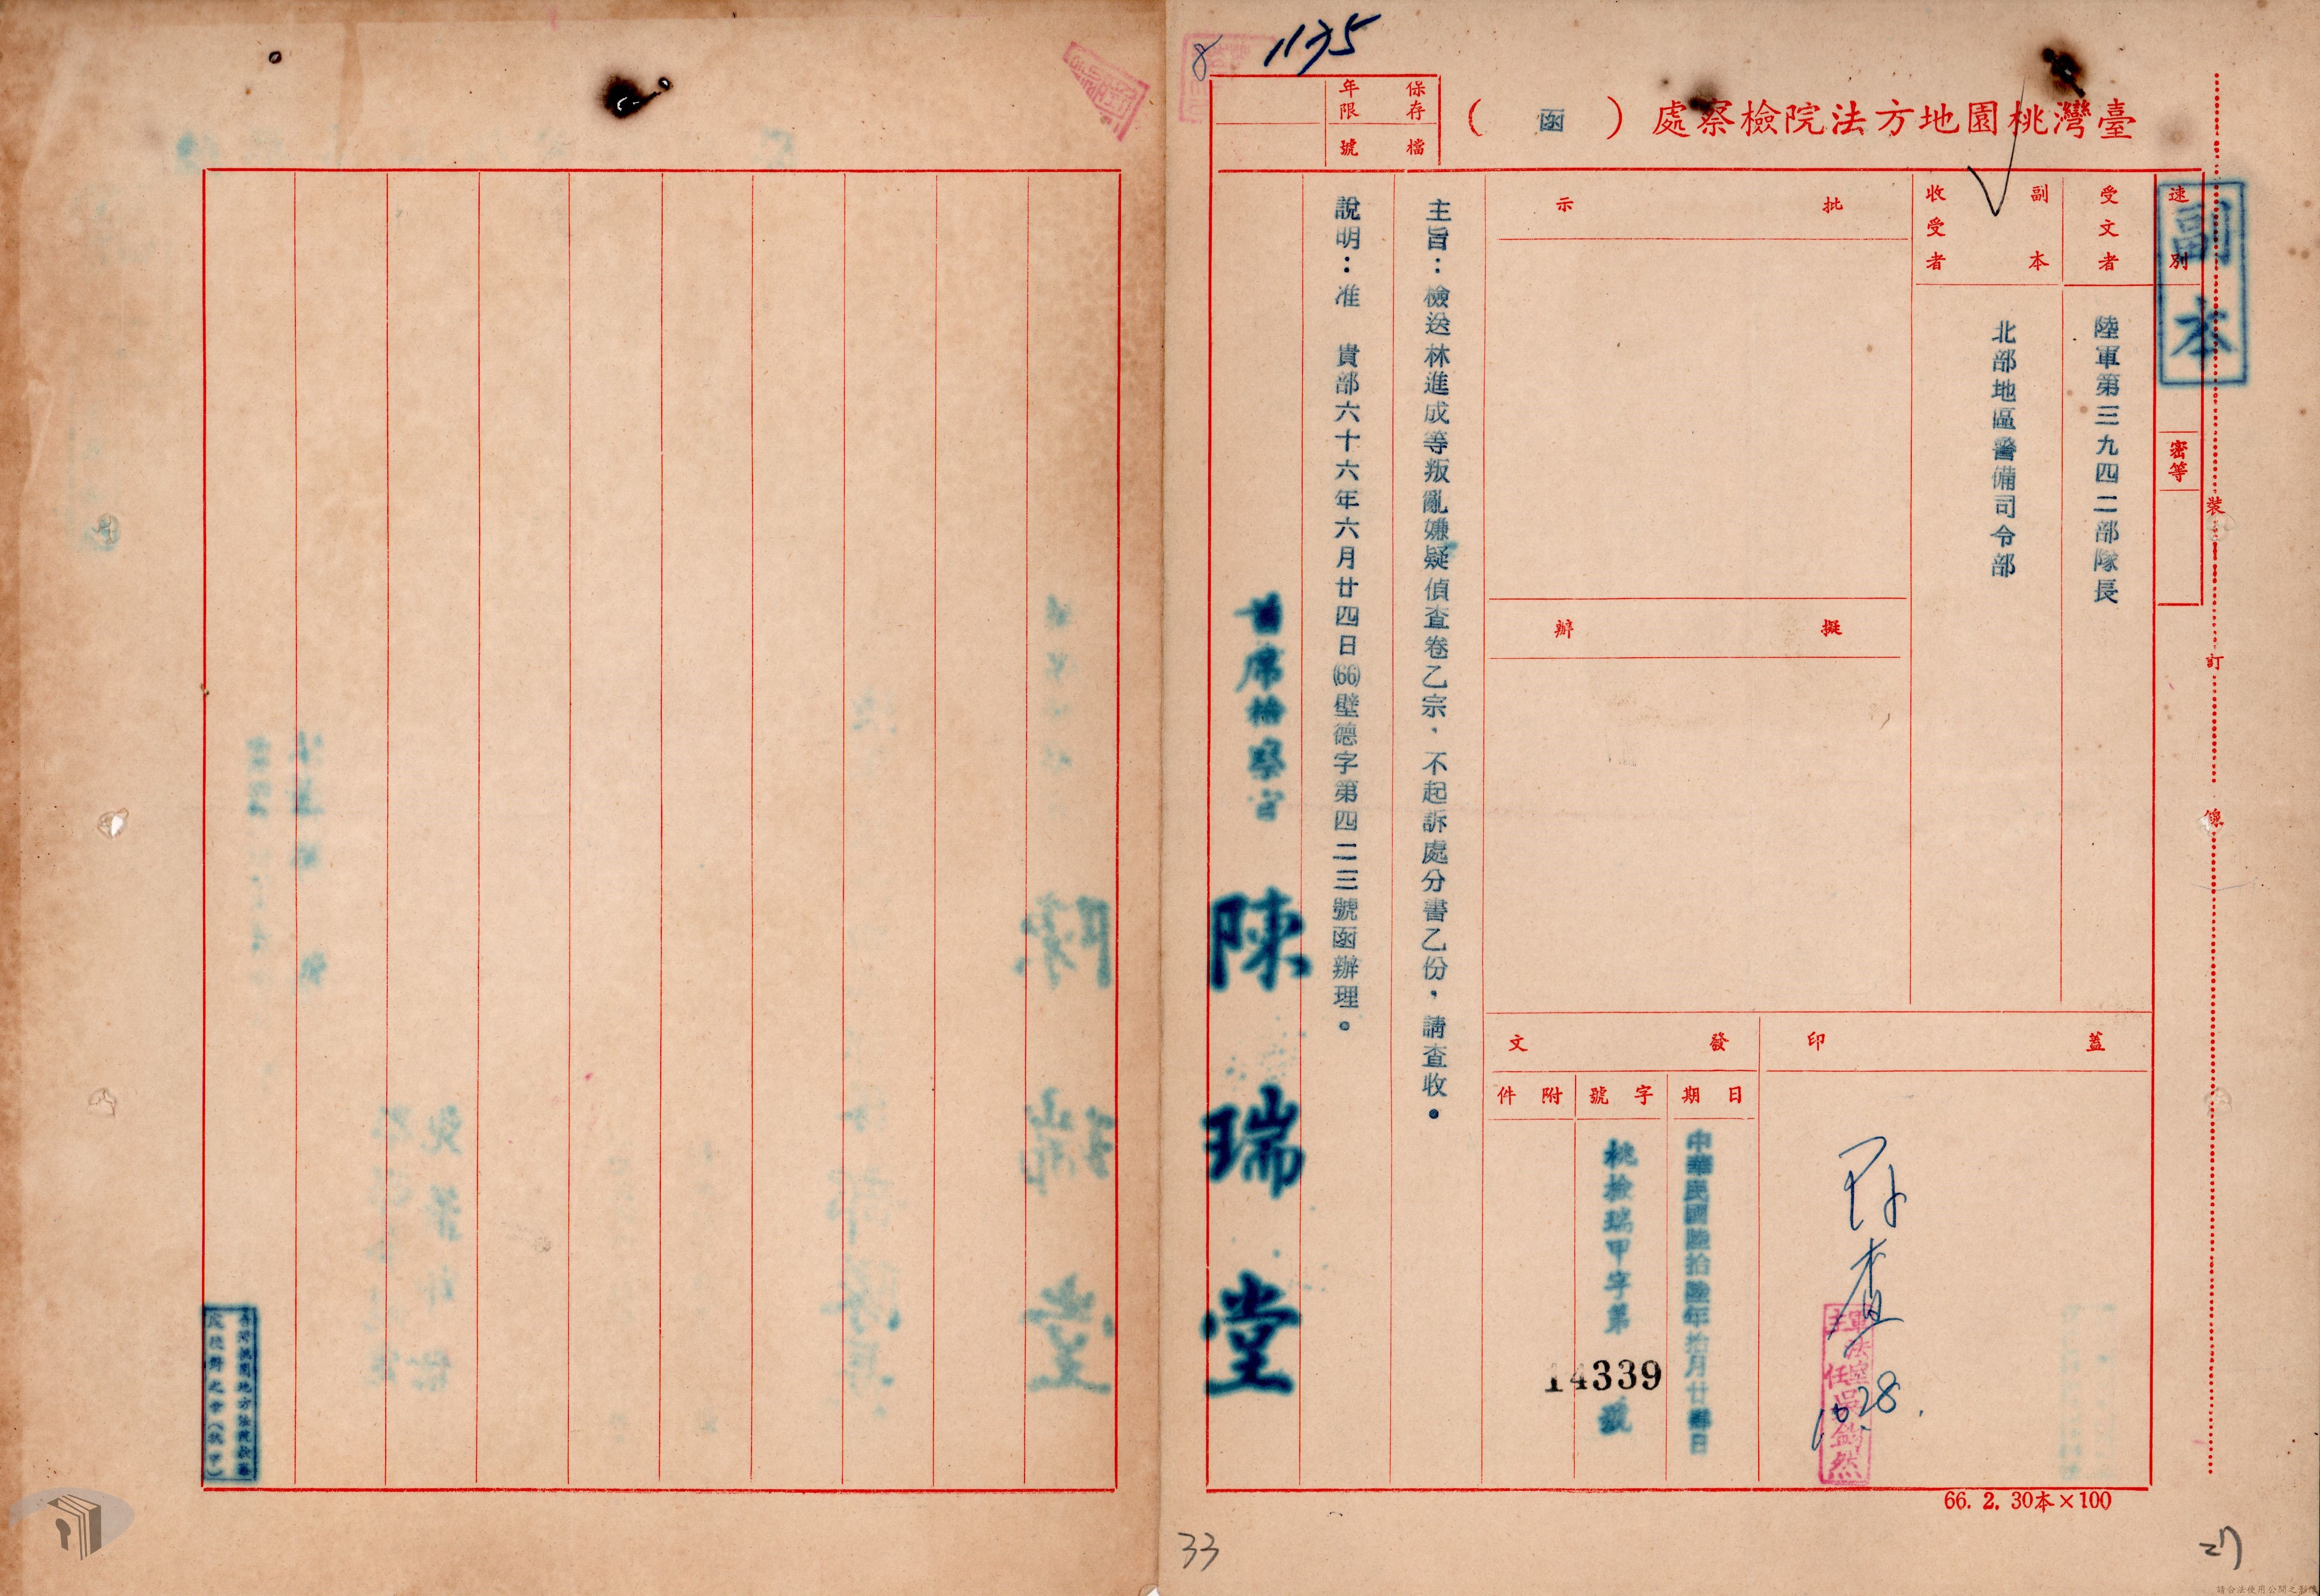 1135
8
臺灣桃園地方法院檢察處（函）
保存年限
檔號
副本
速別
密等
裝
訂
線
受文者
陸軍第三九四二部隊長
副本收受者
北部地區警備司令部
批示
擬辦
蓋印
存查
10.28.
軍法室主任吳劍然
發文
日期
中華民國陸拾陸年拾月廿肆日
字號
桃檢瑞甲字第14339號
附件
主旨：檢送林進成等叛亂嫌疑偵查卷乙宗，不起訴處分書乙份，請查收。
說明：准 貴部六十六年六月廿四日(66)壁德字第四二三號函辦理。
首席檢察官 陳瑞堂
66. 2. 30本×100
33
27
請合法使用公開之影像